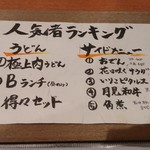 人気者ランキング
うどん
①極上肉うどん
②Bランチ
③得々セット
サイドメニュー
①おでん
②花咲くサラダ
③いりこピクルス
④月見和牛
⑤角煮